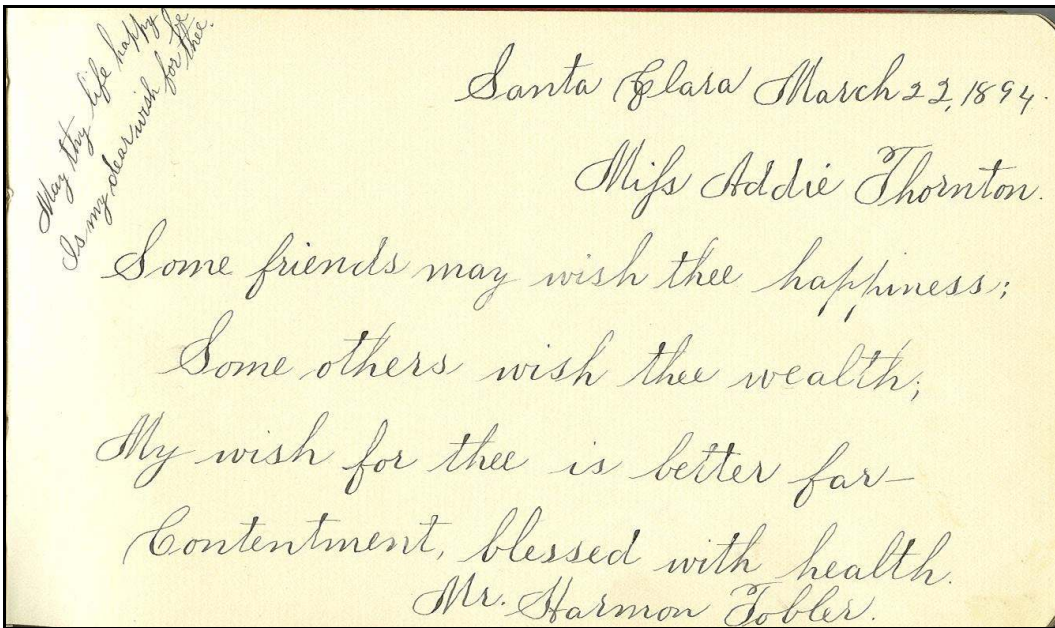 May thy life happy be
Is my dear wish for thee.
Santa Clara March 22, 1894.
Miſs Addie Thornton.
Some friends may wish thee happiness;
Some others wish thee wealth;
My wish for thee is better far—
Contentment, blessed with health.
Mr. Harmon Tobler.